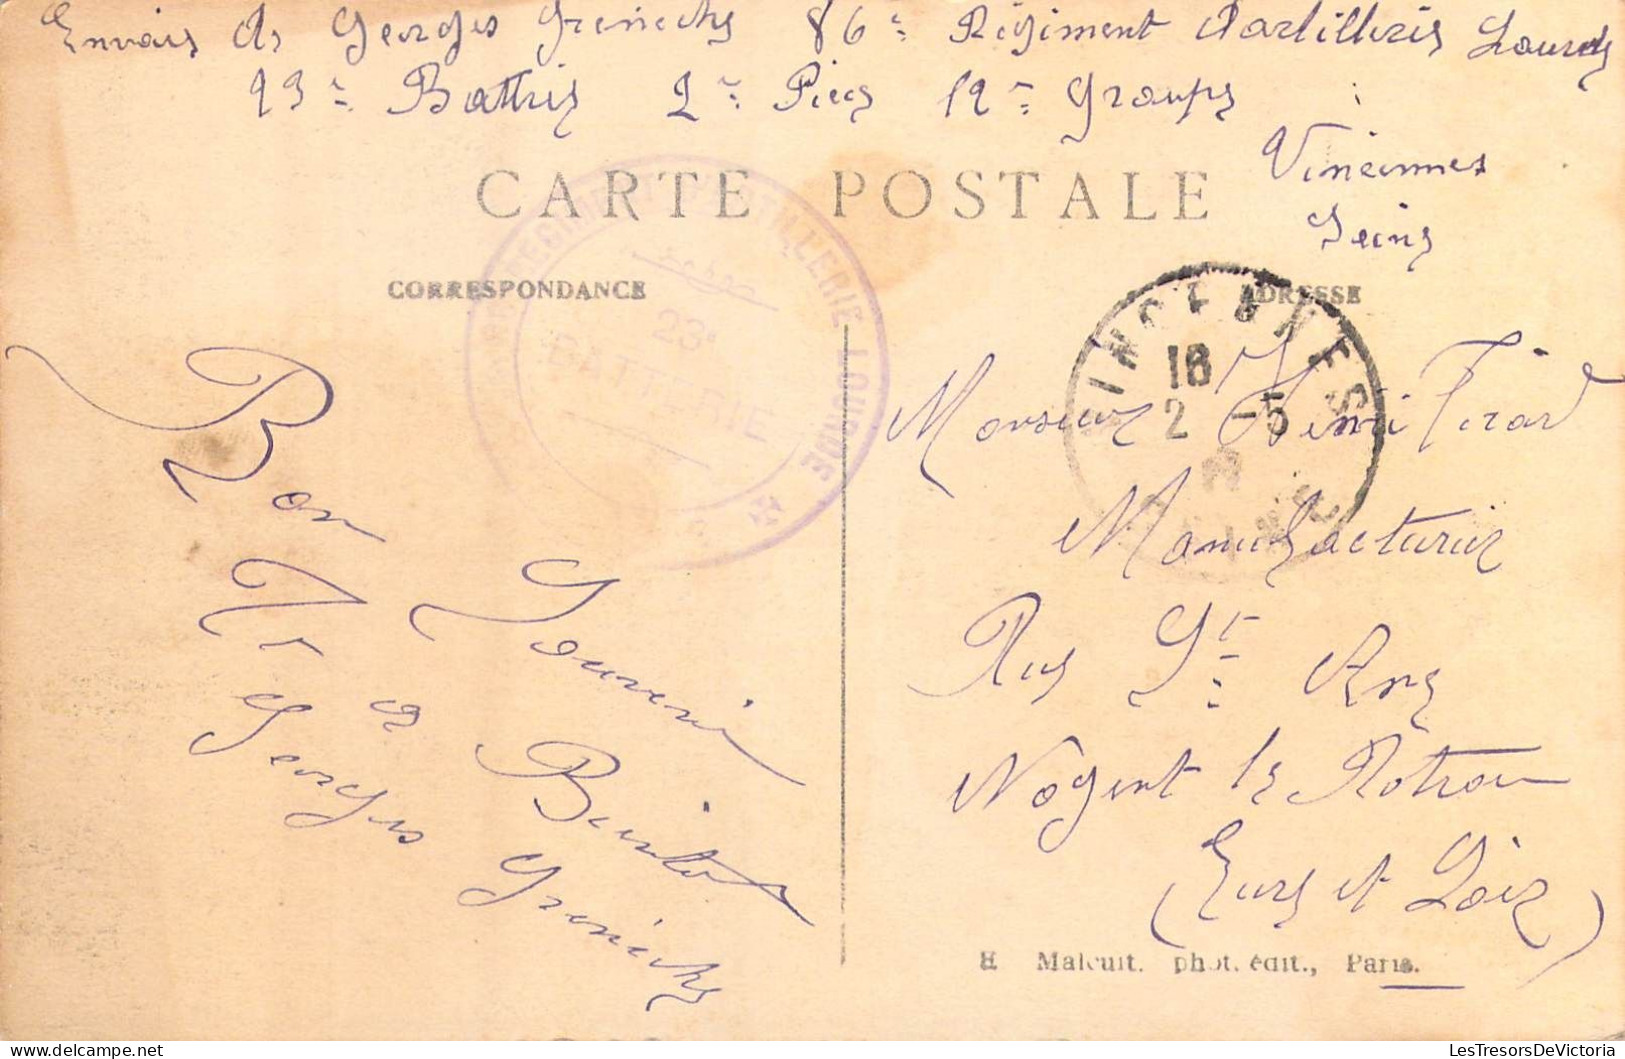 Envois de Georges Grenechs 86e Régiment d'artillerie Lourde
23e Battrie 2e Pièce 12e Groupe
Vincennes
Seine
CARTE POSTALE
CORRESPONDANCE
ADRESSE
RÉGIMENT D'ARTILLERIE LOURDE
23e
BATTERIE
VINCENNES
18
2 -5
SEINE
Monsieur Henri Tirard
Manufacturier
Rue St Ane
Nogent le Rotrou
(Eure et Loir)
Bon Souvenir
et a Bientot
Georges
H Malcuit. phot. édit., Paris.
LesTresorsDeVictoria